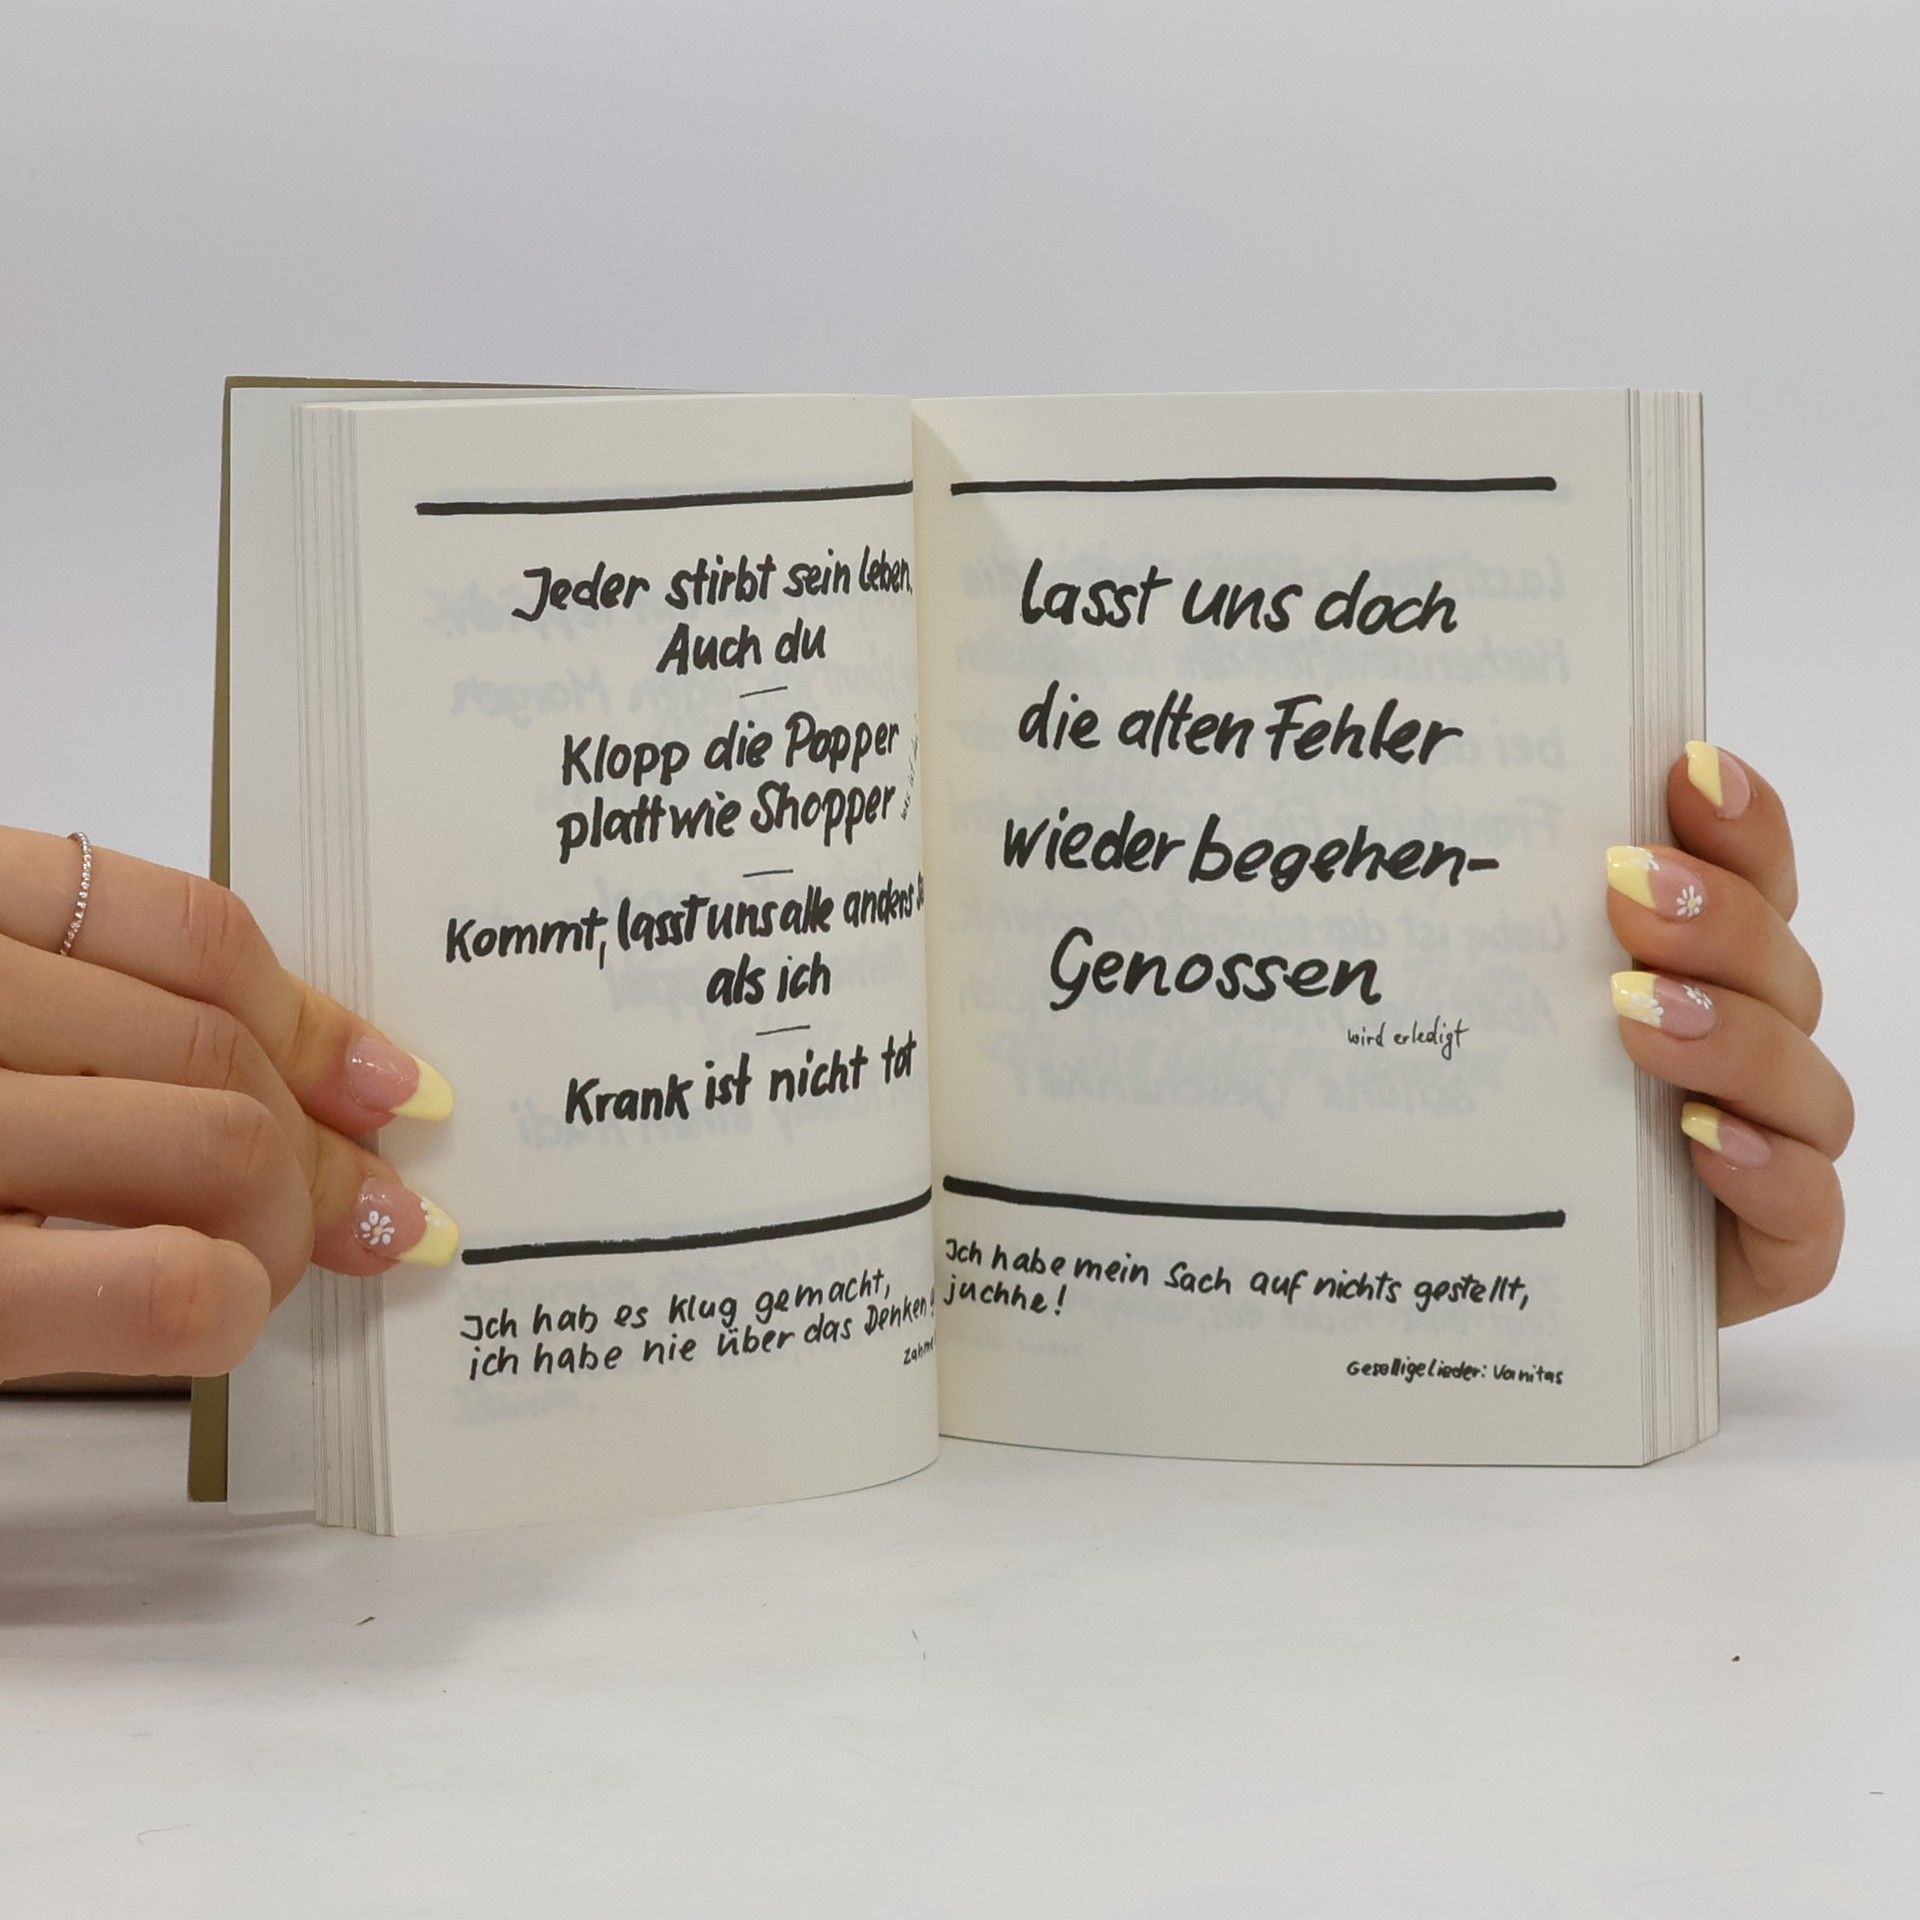 Jeder stirbt sein leben,
Auch du
Klopp die Popper
platt wie Shopper
Kommt, lasst uns alle anders
als ich
Krank ist nicht tot
Ich hab es klug gemacht,
ich habe nie über das Denken
lasst uns doch
die alten Fehler
wieder begehen-
Genossen
wird erledigt
Ich habe mein Sach auf nichts gestellt,
juchhe!
Gesellige Lieder: Vanitas